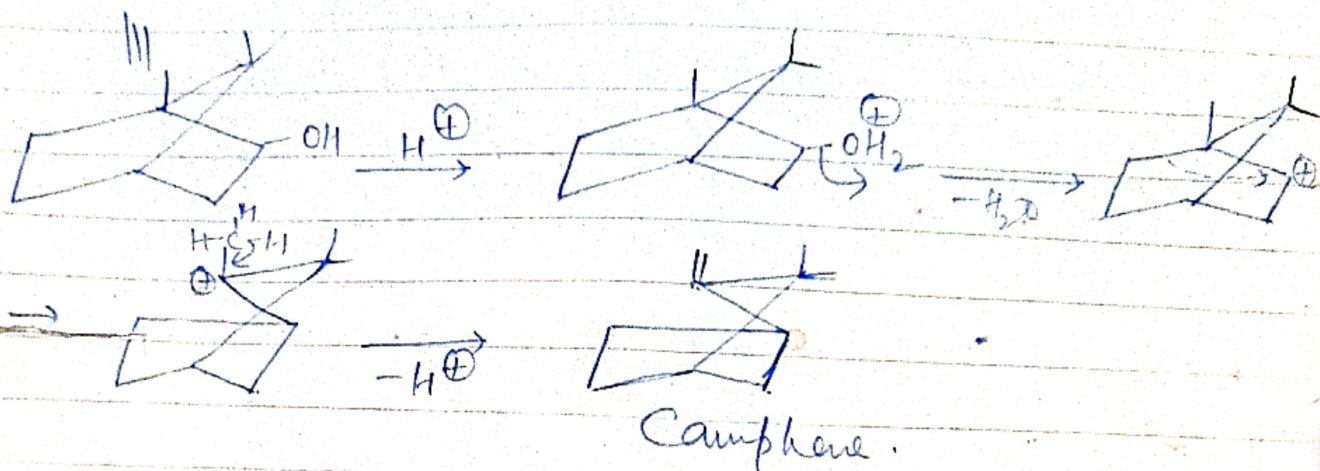 III
OH H⊕ ⊕ OH₂ -H₂O ⊕
H-C-H H ⊕ -H⊕
Camphene.